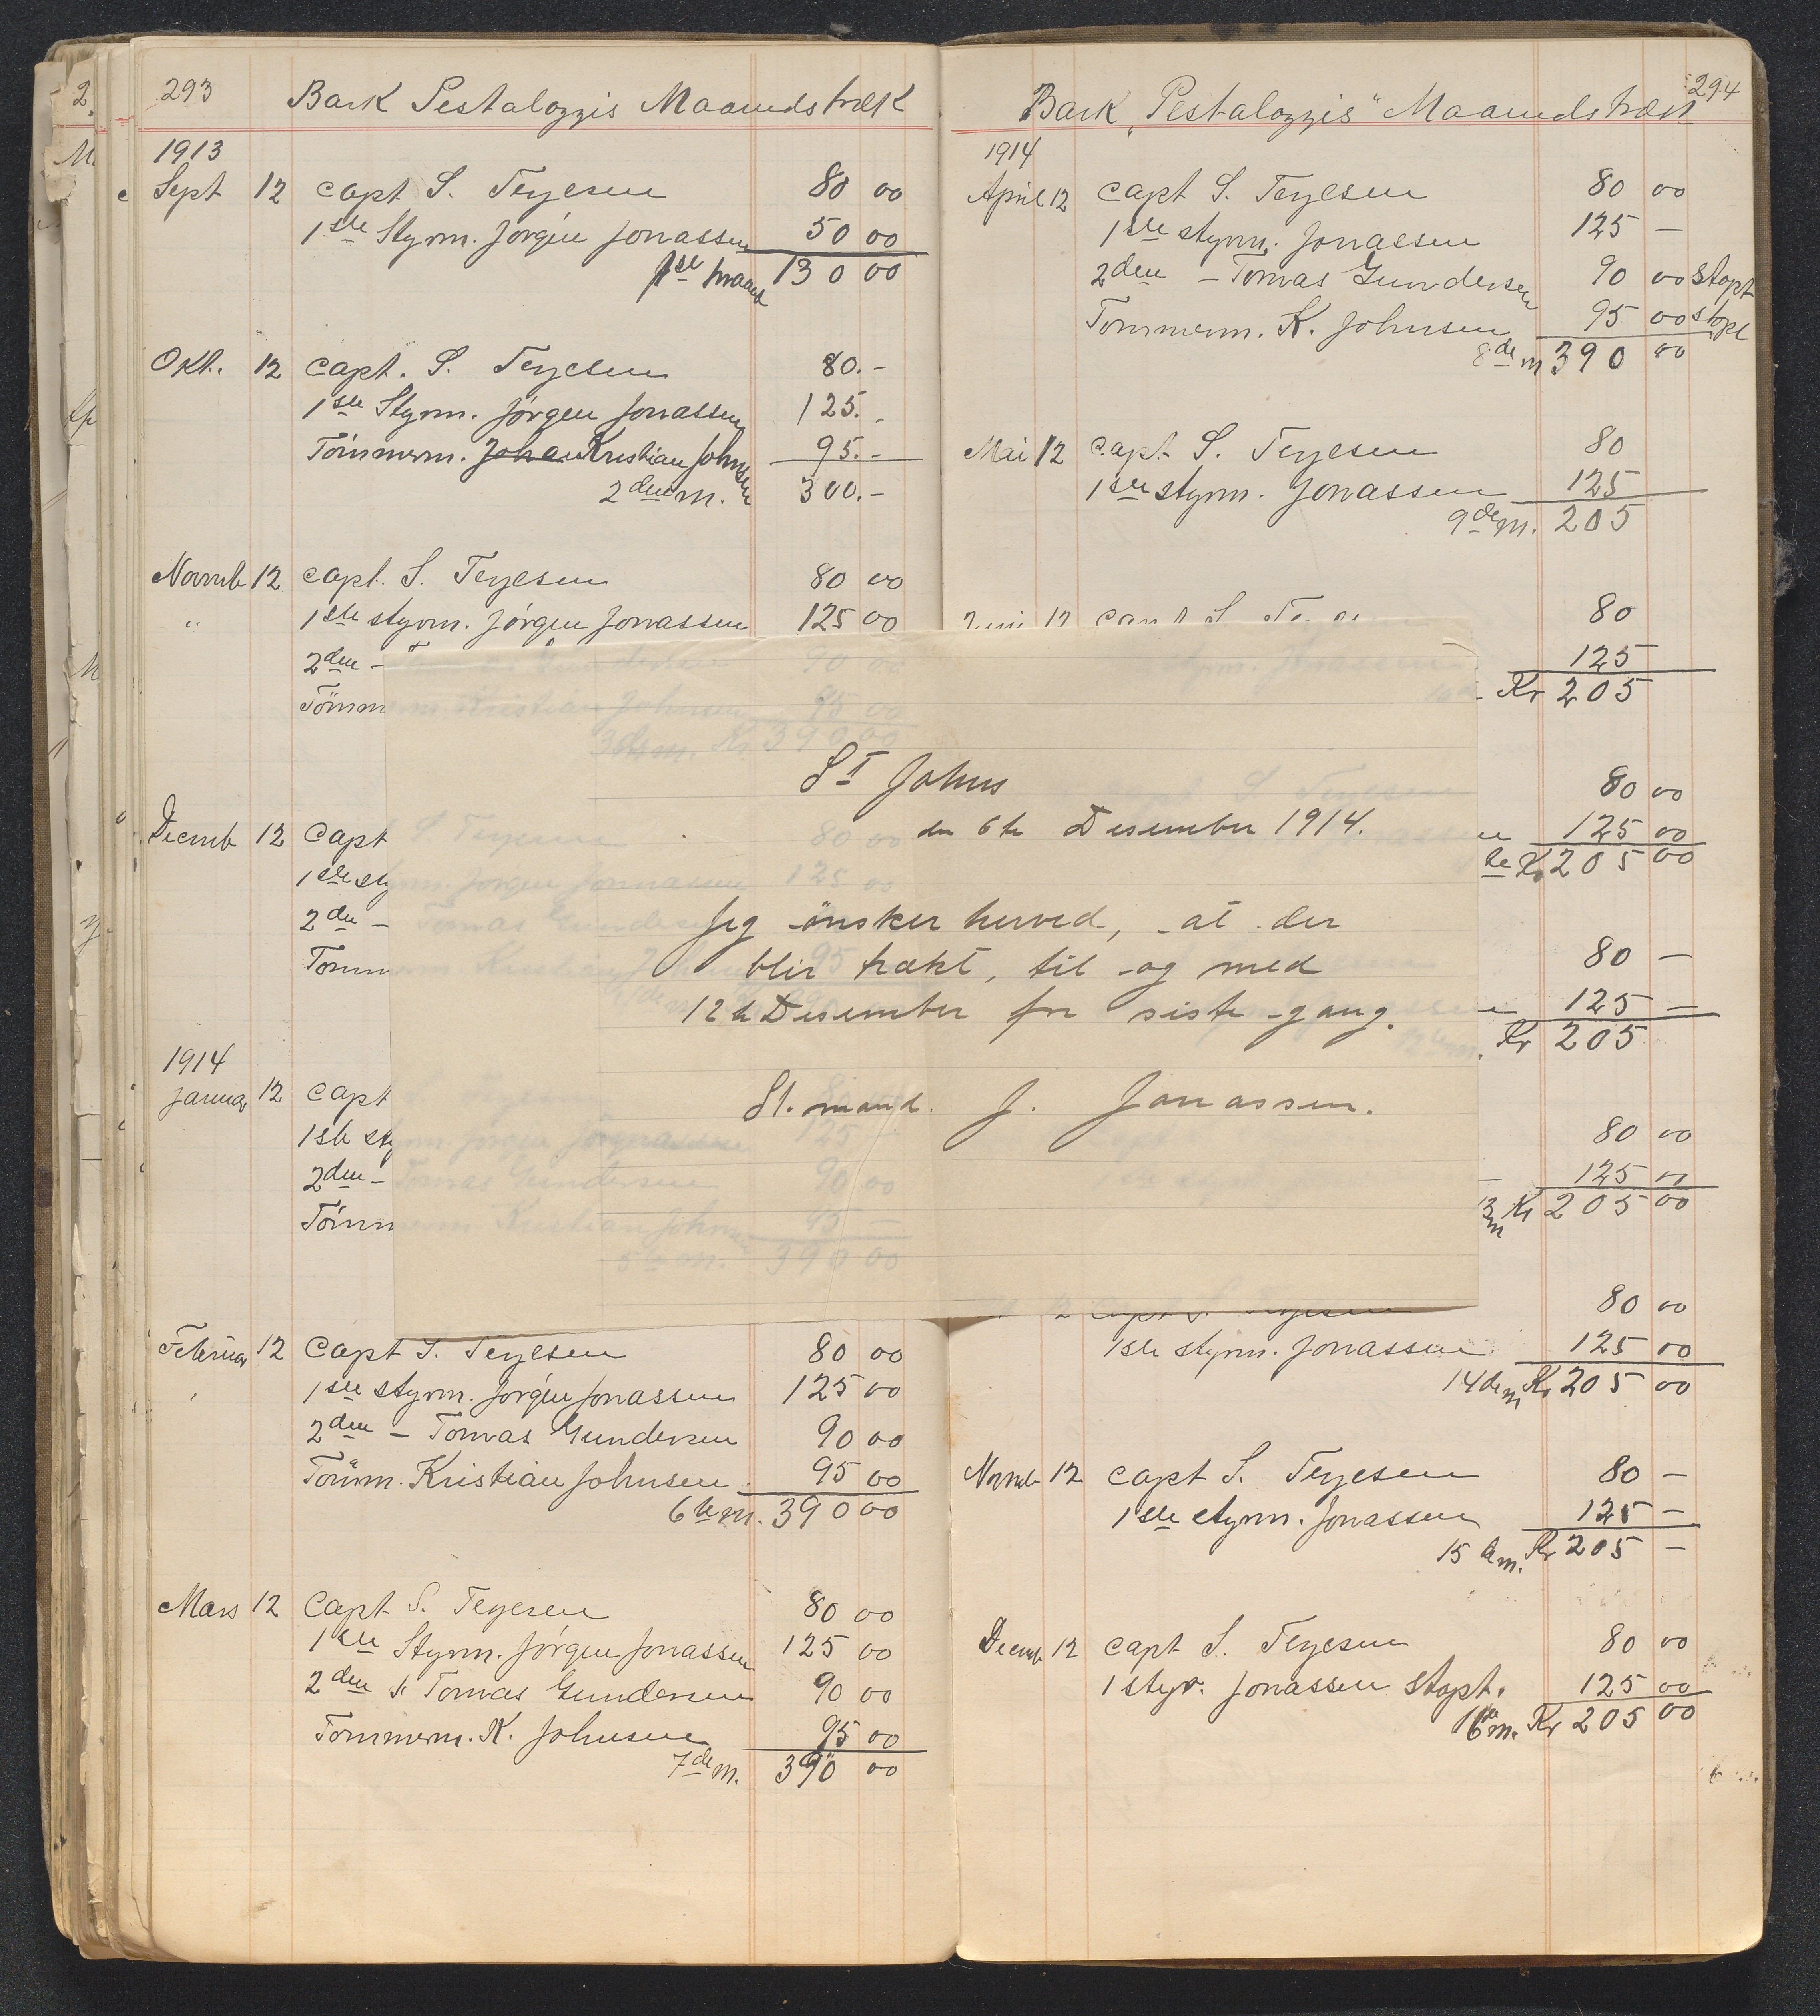 293 Bark Pestalozzis Maanedstræk
1913
Sept 12 Capt S. Terjesen 80 00
1ste Styrm. Jørgen Jonassen 50 00
1ste maaned 130 00
Okt. 12 Capt. S. Terjesen 80.-
1ste Styrm. Jörgen Jonassen 125.-
Tömmerm. Johan Kristian Johnsen 95.-
2den m. 300.-
Novmb 12 Capt. S. Terjesen 80 00
" 1ste styrm. Jörgen Jonassen 125 00
2den - Tomas Gundersen 90 00
Tömmerm Kristian Johnsen 95 00
3de m. Kr 390 00
Decmb 12 Capt S. Terjesen 80 00
1ste styrm. Jörgen Jonnassen 125 00
2den - Tomas Gundersen
Tömmerm Kristian 95
1914
Januar 12 Capt S. Terjesen
1ste styrm. Jörgen Jonassen 125
2den - Tomas Gundersen 90 00
Tömmerm Kristian Johnsen 95 -
5te m. 390 00
Februar 12 Capt S. Terjesen 80 00
1ste styrm. Jörgen Jonassen 125 00
2den - Tomas Gundersen 90 00
Tömm. Kristian Johnsen 95 00
6te m. 390 00
Mars 12 Capt S. Terjesen 80 00
1ste Styrm. Jörgen Jonassen 125 00
2den s. Tomas Gundersen 90 00
Tömmerm. K. Johnsen 95 00
7de m. 390 00
St Johns
den 6te Desember 1914.
Jeg önsker herved, at der
blir trækt, til og med
12te Desember for siste gang.
St. mand. J. Jonassen.
294
Bark "Pestalozzis" Maanedstræk
1914
April 12 Capt S. Terjesen 80 00
1ste styrm. Jonassen 125 -
2den - Tomas Gundersen 90 00 Stopt
Tömmerm. K. Johnsen 95 00 stopt
8de m 390 00
Mai 12 Capt S. Terjesen 80
1ste styrm. Jonassen 125
9de m. 205
Juni 12 Capt S. Te 80
styrm. Jonassen 125
Kr 205
80 00
125 00
Kr 205 00
80 -
125 -
12te m. Kr 205
80 00
125 00
13 m Kr 205 00
12 Capt S. Terjesen 80 00
1ste styrm. Jonassen 125 00
14de m Kr 205 00
Novmb 12 Capt S. Terjesen 80 -
1ste styrm. Jonassen 125 -
15 de m. Kr 205 -
Decmb 12 Capt S. Terjesen 80 00
1 styr. Jonassen Stopt. 125 00
16de m. Kr 205 00